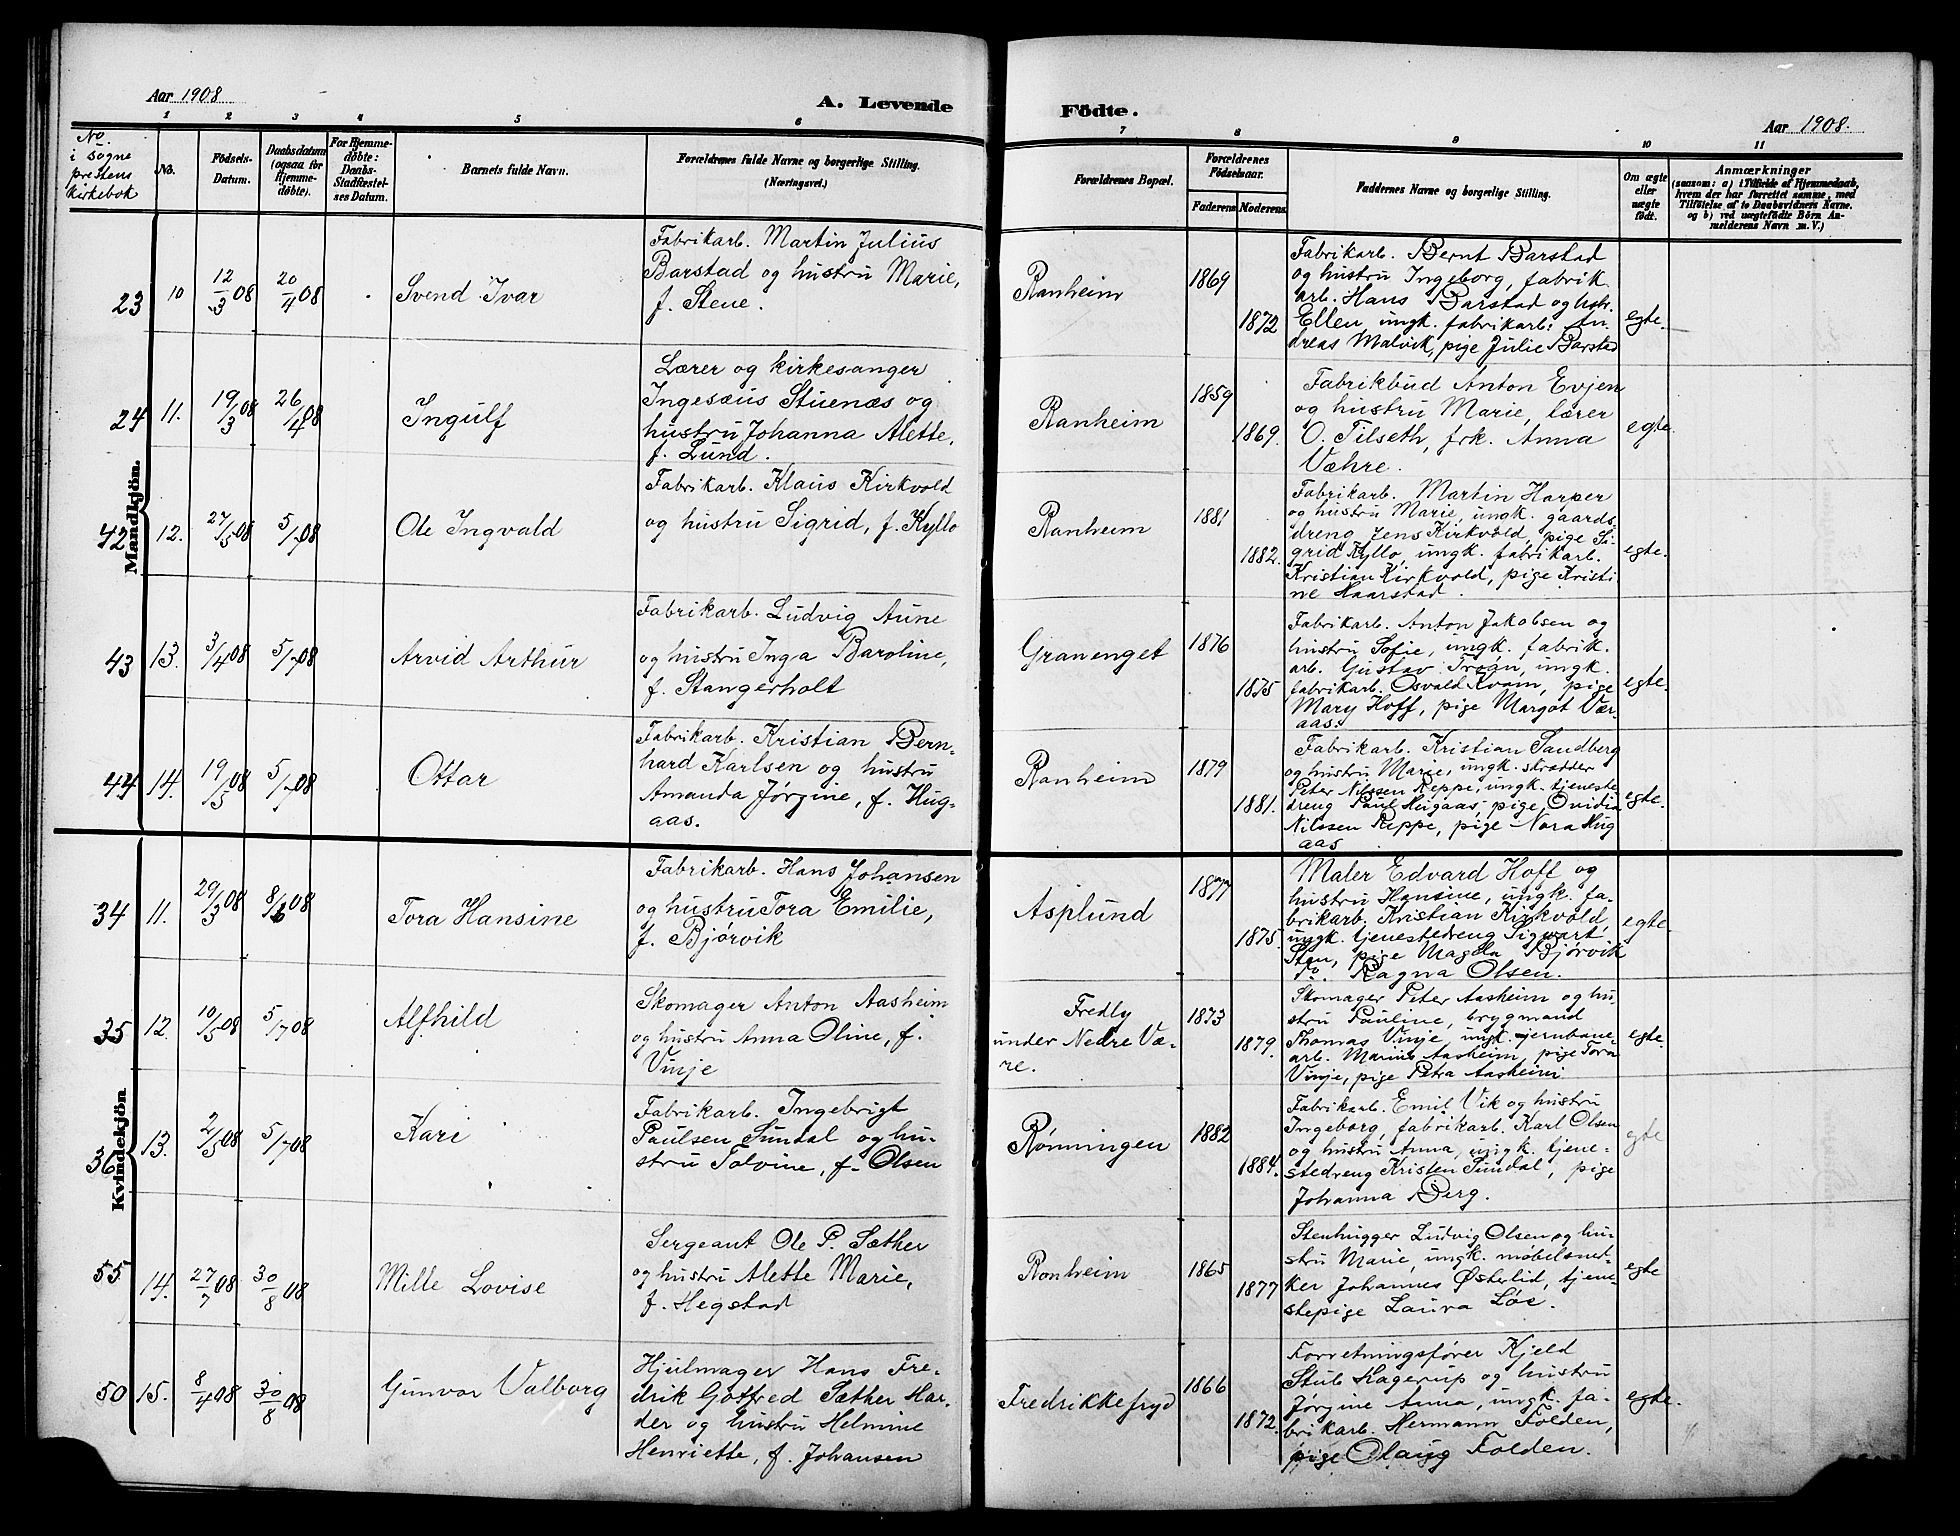 Aar 1908
A. Levende
Födte.
Aar 1908.
1 2 3 4 5 6 7 8 9 10 11
No. i sogneprestens kirkebok
No.
Födsels-Datum.
Daabsdatum (ogsaa for Hjemmedøbte).
For Hjemmedøbte: Daabs-Stadfæstelses Datum.
Barnets fulde Navn.
Forældrenes fulde Navne og borgerlige Stilling.
(Næringsvei.)
Forældrenes Bopæl.
Forældrenes Födselsaar.
Faderens Moderens
Faddernes Navne og borgerlige Stilling.
Om ægte eller uægte födt.
Anmærkninger
(saasom: a) i Tilfælde af Hjemmedaab,
hvem der har forrettet samme, med
Tilføielse af to Daabsvidners Navne.
og b) ved uægtefødte Börn An-
melderens Navn m. V.)
Mandkjön.
23 10 12/3 08 20/4 08 Svend Ivar
Fabrikarb. Martin Julius
Barstad og hustru Marie,
f. Stene.
Ranheim
1869
1872
Fabrikarb. Bernt Barstad
og hustru Ingeborg, fabrik
arb. Hans Barstad og hstr.
Ellen ungk. fabrikarb. An
dreas Malvik, pige Julie Barstad
egte.
24 11. 19/3 08 26/4 08 Ingulf
Lærer og kirkesanger
Ingesæus Stuenæs og
hustru Johanna Alette,
f. Lund.
Ranheim
1859
1869.
Fabrikbud Anton Evjen
og hustru Marie, lærer
O. Tilseth, frk. Anna
Væhre.
egte.
42 12. 27/5 08 5/7 08 Ole Ingvald
Fabrikarb. Klaus Kirkvold
og hustru Sigrid, f. Kyllo
Ranheim
1881
1882.
Fabrikarb. Martin Harper
og hustru Marie, ungk. gaards
dreng Jens Kirkvold, pige Si
grid Kyllo, ungk. fabrikarb.
Kristian Kirkvold, pige Kristi
ne Haarstad.
egte.
43 13. 3/4 08 5/7 08 Arvid Arthur
Fabrikarb. Ludvig Aune
og hustru Inga Baroline,
f. Stangerholt
Granenget
1876
1875
Fabrikarb. Anton Jakobsen og
hustru Sofie, ungk. fabrik.
arb. Gustav Troan, ungk.
fabrikarb. Osvald Kvam, pige
Mary Hoff, pige Margot Vær-
aas.
egte.
44 14. 19/5 08 5/7 08 Ottar
Fabrikarb. Kristian Bern-
hard Karlsen og hustru
Amanda Jørgine, f. Hug-
aas.
Ranheim
1879
1881.
Fabrikarb. Kristian Sandberg
og hustru Marie, ungk. skrædder
Peter Nilssen Reppe, ungk. tjeneste
dreng Paul Hugaas, pige Ovidia
Nilssen Reppe, pige Nora Hug
aas
egte.
Kvindekjön
34 11. 29/3 08 8/6 08 Tora Hansine
Fabrikarb. Hans Johansen
og hustru Tora Emilie,
f. Bjørvik
Asplund
1877
1875.
Maler Edvard Hoff og
hustru Hansine, ungk. fa-
brikarb. Kristian Kirkvold,
ungk. tjenestedreng Sigvart
Sten, pige Magda Bjørvik
Ragna Olsen.
egte.
35 12. 10/5 08 5/7 08 Alfhild
Skomager Anton Aasheim
og hustru Anna Oline, f.
Vinje
Fredly
under Nedre Væ-
re.
1873
1879.
Skomager Peter Aasheim og hu-
stru Pauline, brygmand
Thomas Vinje, ungk. jernbane-
arb. Marius Aasheim, pige Tora
Vinje, pige Petra Aasheim.
egte.
36 13. 2/5 08 5/7 08 Kari
Fabrikarb. Ingebrigt
Paulsen Sundal og hu-
stru Tolvine, f. Olsen
Rønningen
1882
1884.
Fabrikarb. Emil Vik og hustru
Ingeborg, fabrikarb. Karl Olsen
og hustru Anna, ungk. tjene-
stedreng Kristen Sundal, pige
Johanna Berg.
egte
55 14. 27/7 08 30/8 08 Mille Lovise
Sergeant Ole P. Sæther
og hustru Alette Marie,
f. Hegstad
Ranheim
1865
1877
Stenhugger Ludvig Olsen og hu-
stru Marie, ungk. møbelsned-
ker Johannes Østerlid, tjene-
stepige Laura Løe.
egte
50 15. 8/4 08 30/8 08 Gunvor Valborg
Hjulmager Hans Fre-
drik Gotfred Sæther Har-
der og hustru Helmine
Henriette, f. Johansen
Fredrikkefryd
1866
1872.
Forretningsfører Kjeld
Stub Hagerup og hustru
Jørgine Anna, ungk. fa-
brikarb. Hermann Folden,
pige Olaug Folden.
egte.